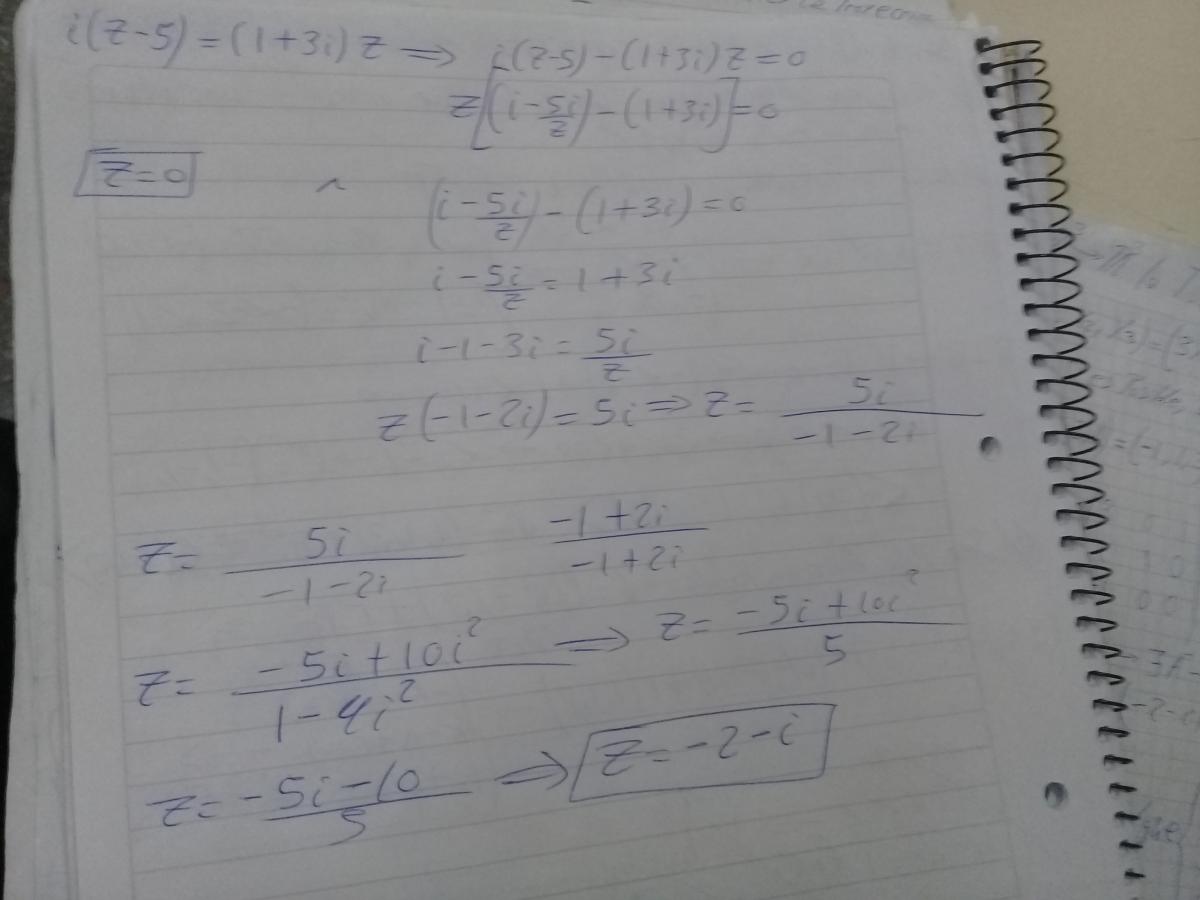 i(z-5) = (1+3i) z ⟹ i(z-5) - (1+3i) z = 0
z[(i - 5i/z) - (1+3i)] = 0
z = 0 ^ (i - 5i/z) - (1+3i) = 0
i - 5i/z = 1+3i
i-1-3i = 5i/z
z(-1-2i) = 5i ⟹ z = 5i/(-1-2i)
z = 5i/(-1-2i) (-1+2i)/(-1+2i)
z = (-5i+10i²)/(1-4i²) ⟹ z = (-5i+10i²)/5
z = (-5i-10)/5 ⟹ z = -2-i